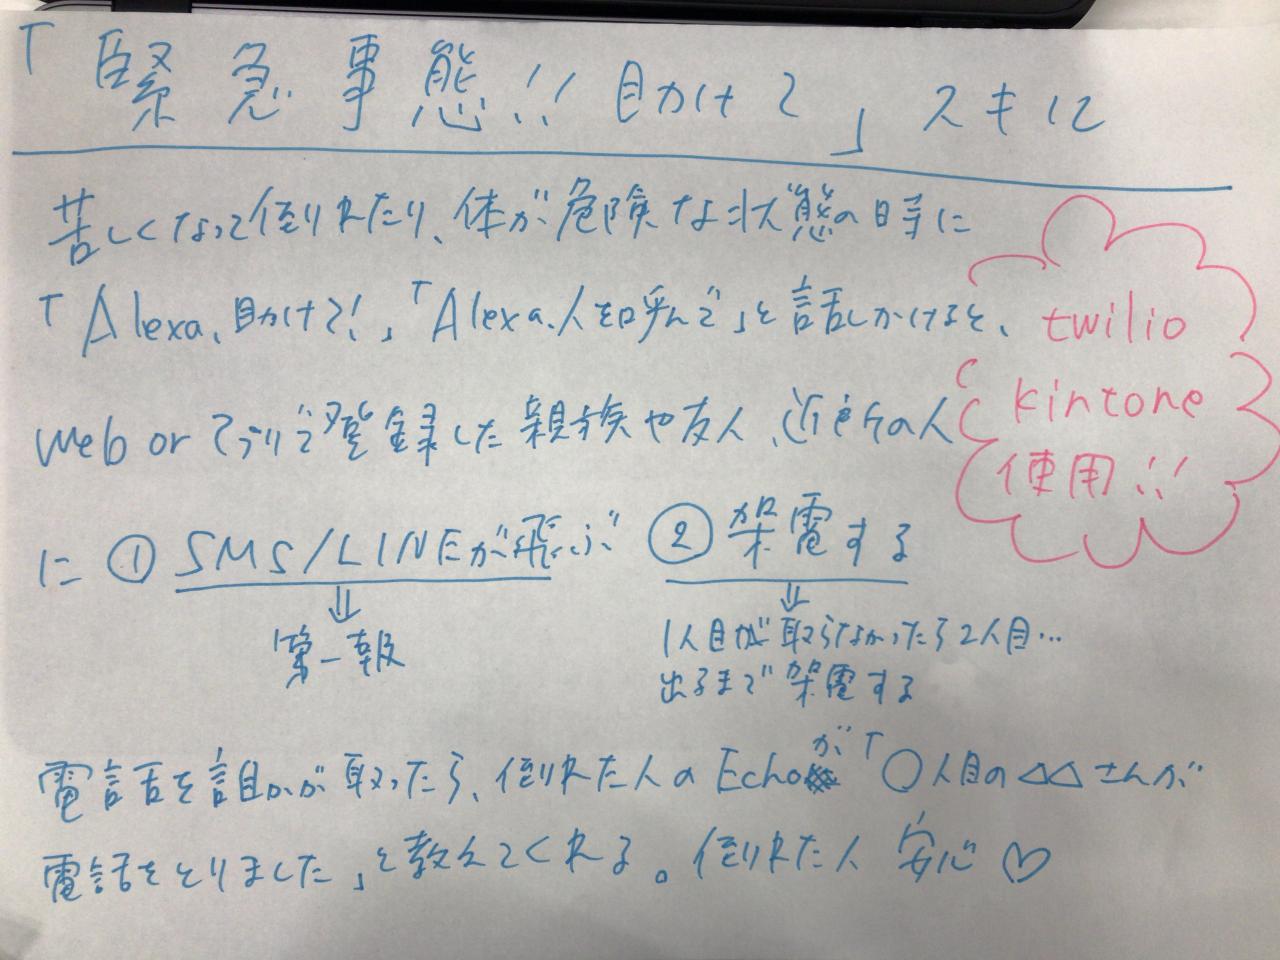 「緊急事態!! 助けて」スキル
苦しくなって倒れたり、体が危険な状態の時に
「Alexa、助けて!」「Alexa、人を呼んで」と話しかけると、
web or アプリで登録した親族や友人、近所の人
に ① SMS/LINEが飛ぶ ② 架電する
⇓ ⇓
第一報
1人目が取らなかったら2人目…
出るまで架電する
電話を誰かが取ったら、倒れた人のEchoが「○人目の△△さんが
電話をとりました」と教えてくれる。倒れた人 安心♡
twilio
kintone
使用!!